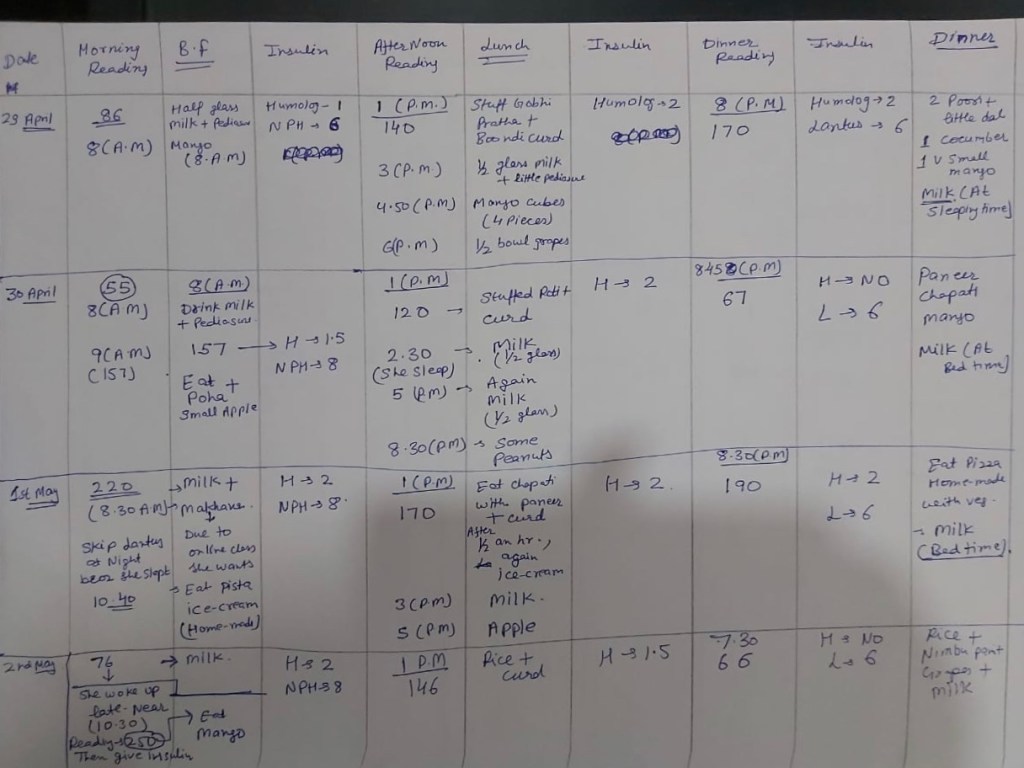 Date
Morning
Reading
B.f
Insulin
AfterNoon
Reading
Lunch
Insulin
Dinner
Reading
Insulin
Dinner
29 April
86
8(A.M)
Half glass
milk + Pediasure
Mango
(8.A.M)
Humolog - 1
NPH → 6
1 (P.M.)
140
3(P.M.)
4.50(P.M)
6(P.M)
Stuff Gobhi
Pratha +
Boondi curd
½ glass milk
+ little pediasure
Mango cubes
(4 Pieces)
½ bowl grapes
Humolog → 2
8 (P.M)
170
Humolog → 2
Lantus → 6
2 Poori +
little dal
1 cocumber
1 v small
mango
Milk (At
Sleeping time)
30 April
55
8(A.M)
9(A.M)
(157)
8(A.M)
Drink milk
+ Pediasure.
157 →
Eat +
Poha
Small Apple
H → 1.5
NPH → 8
1(P.M)
120 →
2.30 →
(She Sleep)
5 (P.M) →
8.30(PM) →
Stuffed Roti +
curd
Milk
(1/2 glass)
Again
milk
(1/2 glass)
Some
Peanuts
H → 2
(P.M)
67
H → NO
L → 6
Paneer
chapati
mango
Milk (At
Bed time)
1st May
220
(8.30 AM)
Skip Lantus
at Night
becoz she slept
10.40
→ Milk +
→ Makhane.
Due to
online class
she wants
→ Eat Pista
ice-cream
(Home-made)
H → 2
NPH → 8.
1(P.M)
170
3(PM)
5 (PM)
Eat chapati
with paneer
+ curd
After
½ an hr.,
again
ice-cream
Milk.
Apple
H → 2.
8.30(P.M)
190
H → 2
L → 6
Eat Pizza
Home-made
with veg.
→ Milk
(Bedtime)
2nd May
76 →
She woke up
late - Near
(10.30)
Reading → 250
Then give Insulin
milk.
→ Eat
Mango
H → 2
NPH → 8
1 P.M
146
Rice +
curd
H → 1.5
7.30
66
H → NO
L → 6
Rice +
+
milk